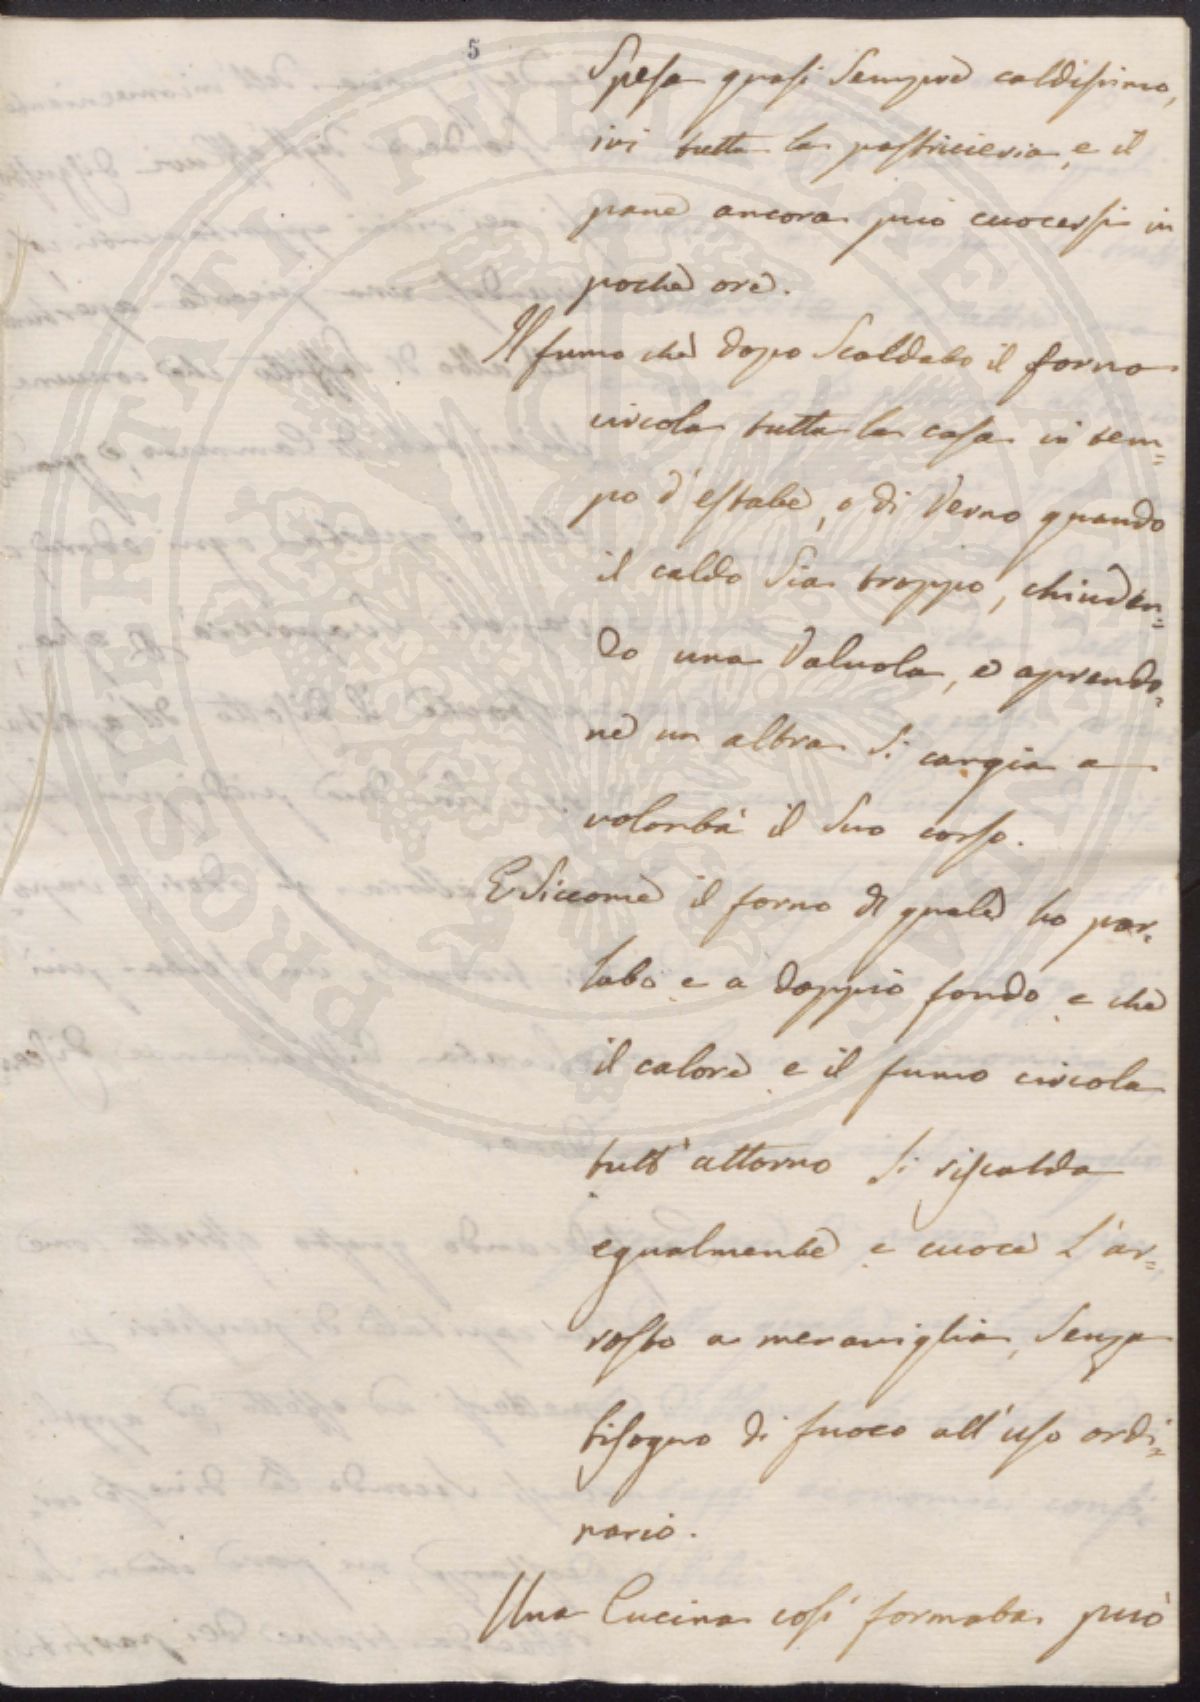 5
Spesa quasi sempre caldissimo,
ivi tutta la pastricieria, e il
pane ancora può cuocersi in
poche ore.
Il fumo che dopo scaldato il forno
circola tutta la casa in tem=
po d'estate, o di Verno quando
il caldo sia troppo, chiuden=
do una Valuola, e aprendo=
ne un altra si cangia a
volontà il suo corso.
E siccome il forno di quale ho par=
lato e a doppio fondo e che
il calore e il fumo circola
tutt'attorno si riscalda
egualmente e cuoce l'ar=
rosto a meraviglia, senza
bisogno di fuoco all'uso ordi=
nario.
Una Cucina così formata può
PROSPERITATI PUBLICAE AUGENDAE